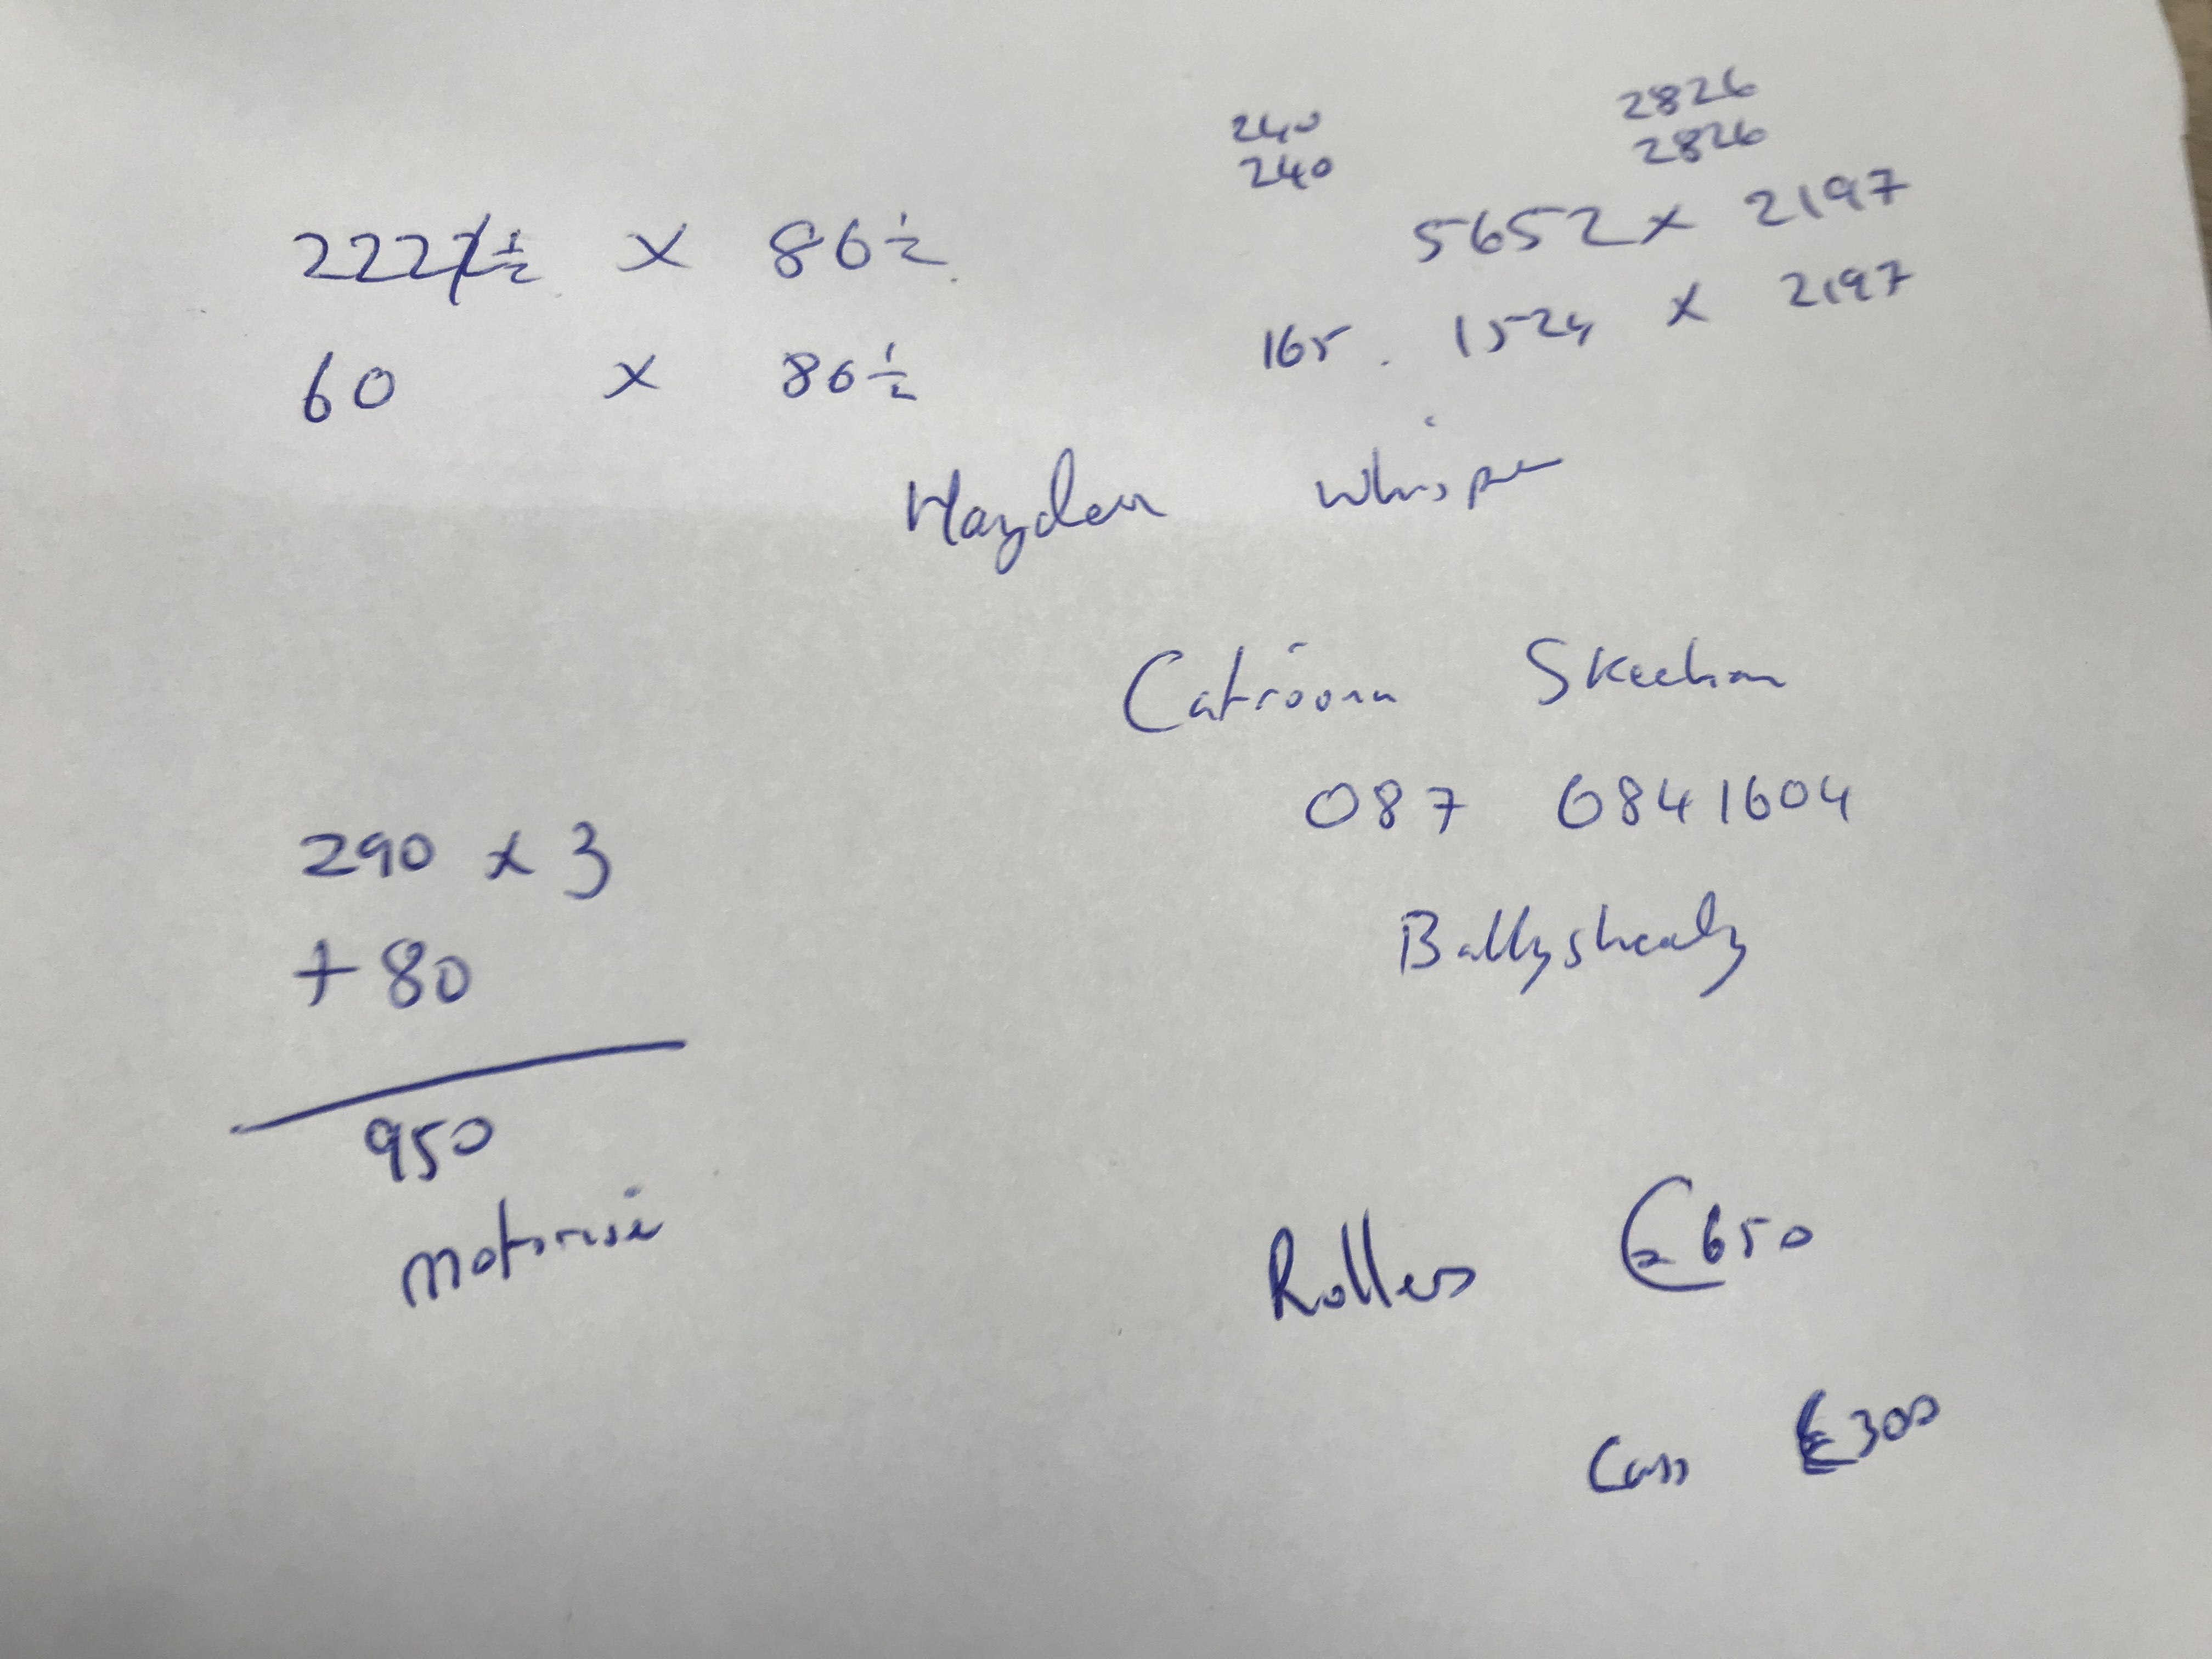 240
240
2826
2826
222½ x 86½
5652 x 2197
60 x 86½
165. 1524 x 2197
Hayden Whisper
Catriona Skeehan
087 6841604
290 x 3
+ 80
Ballyshealy
950
motorise
Rollers €650
€300